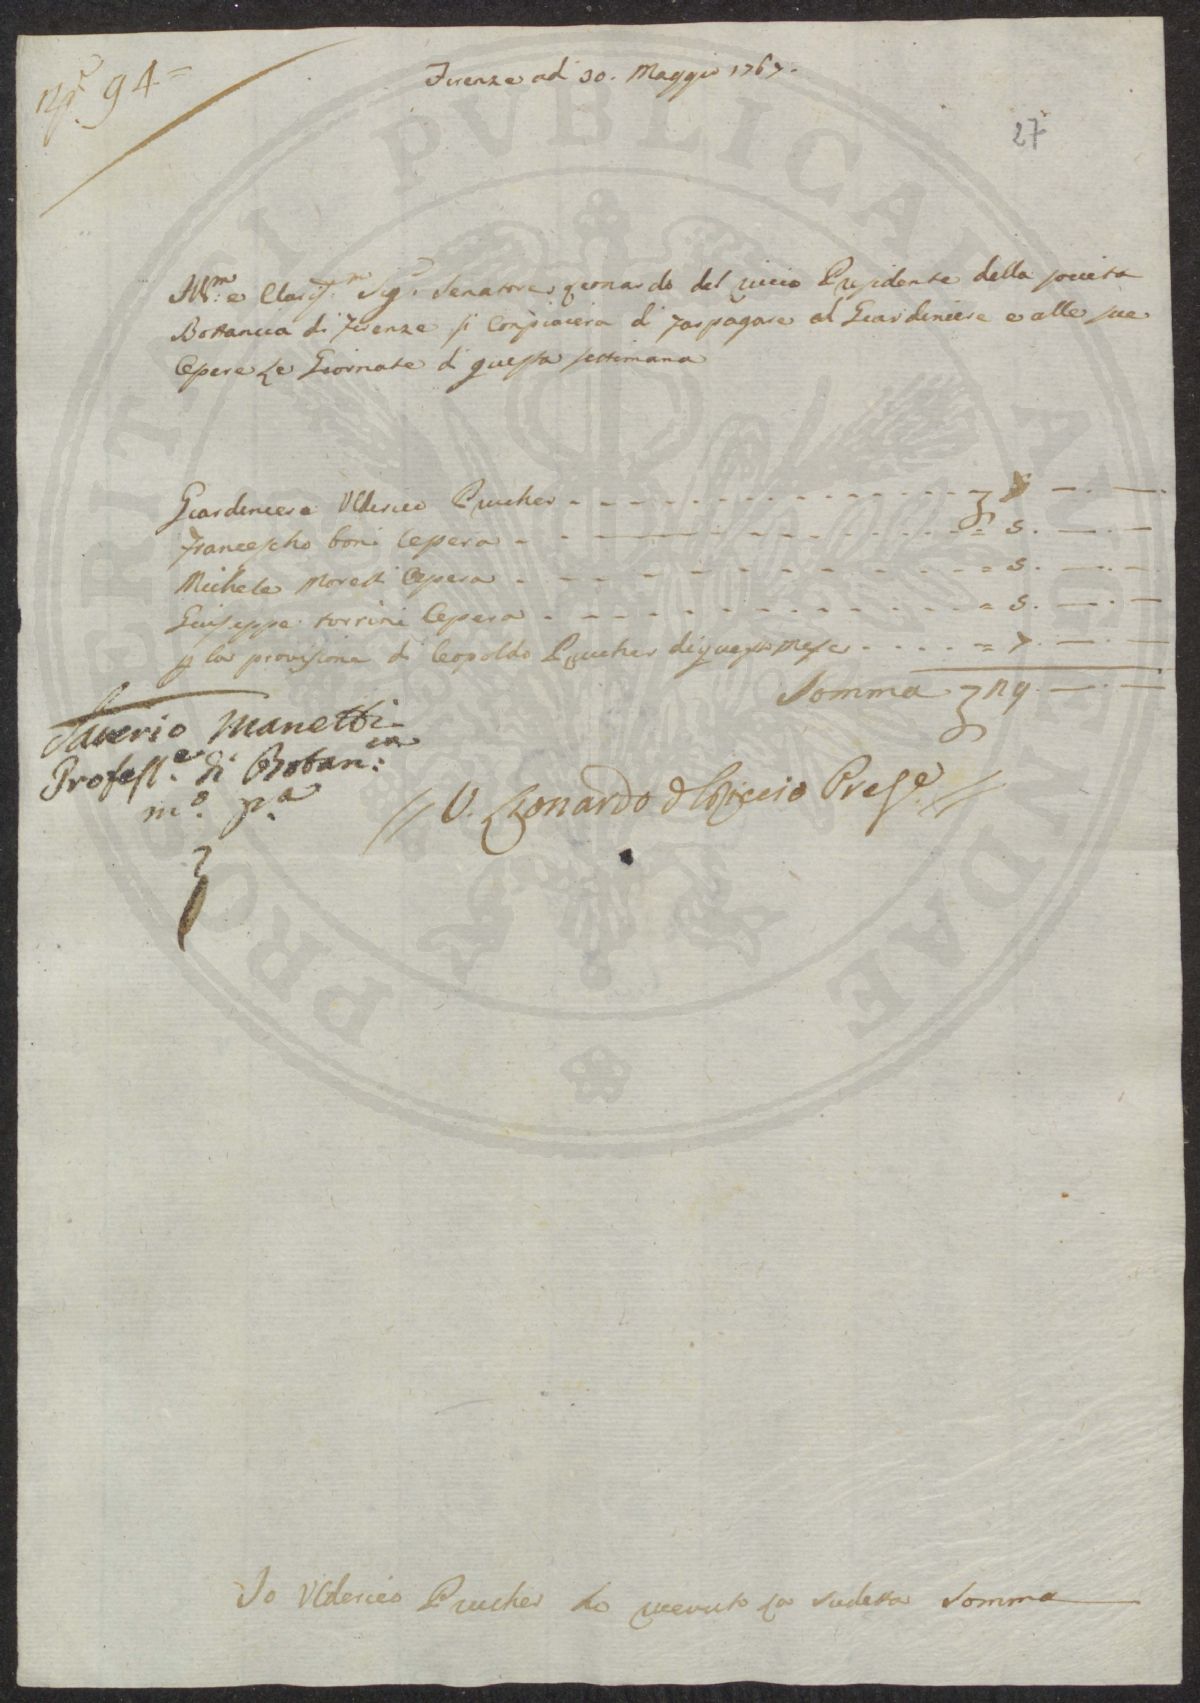 N.º 94=
Firenze adi 30. Maggio 1767.
27
Ill.mo e Clariss.mo Sig.r Senatore Leonardo del riccio Presidente della societa
Bottanica di Firenze si Conpiacera di far pagare al Giardiniere e alle sue
Opere Le Giornate di questa settimana
Giardiniere Ulderico Prucher
Francescho boni Opera = 5. — . —
Michele Moresi Opera = 5. — . —
Giuseppe torrini Opera = 5. — . —
p la provisione di leopoldo Prucher di questo Mese = 7. — . —
Somma 29. — . —
Saverio Manetti
Profess.e di Botan:ca
m.o p.a
// V. Lionardo d Riccio Pres.e //
Io Ulderico Prucher ho riceuuto La sudetta somma
PROSPERITATI PVBLICAE AVGENDAE